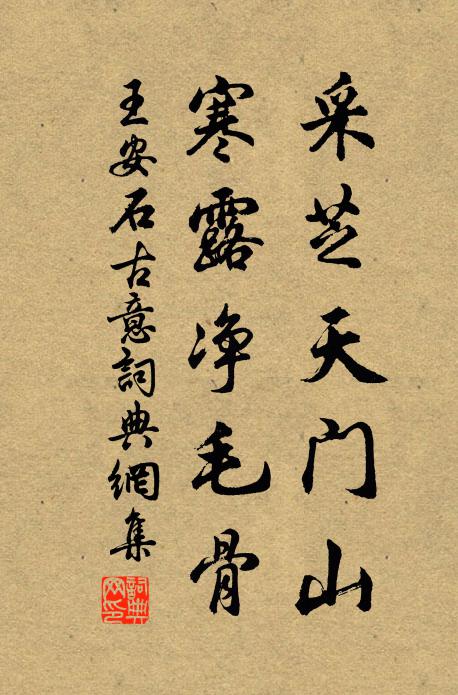 采芝天门山
寒露净毛骨
王安石古意詞典網集
詞典网印